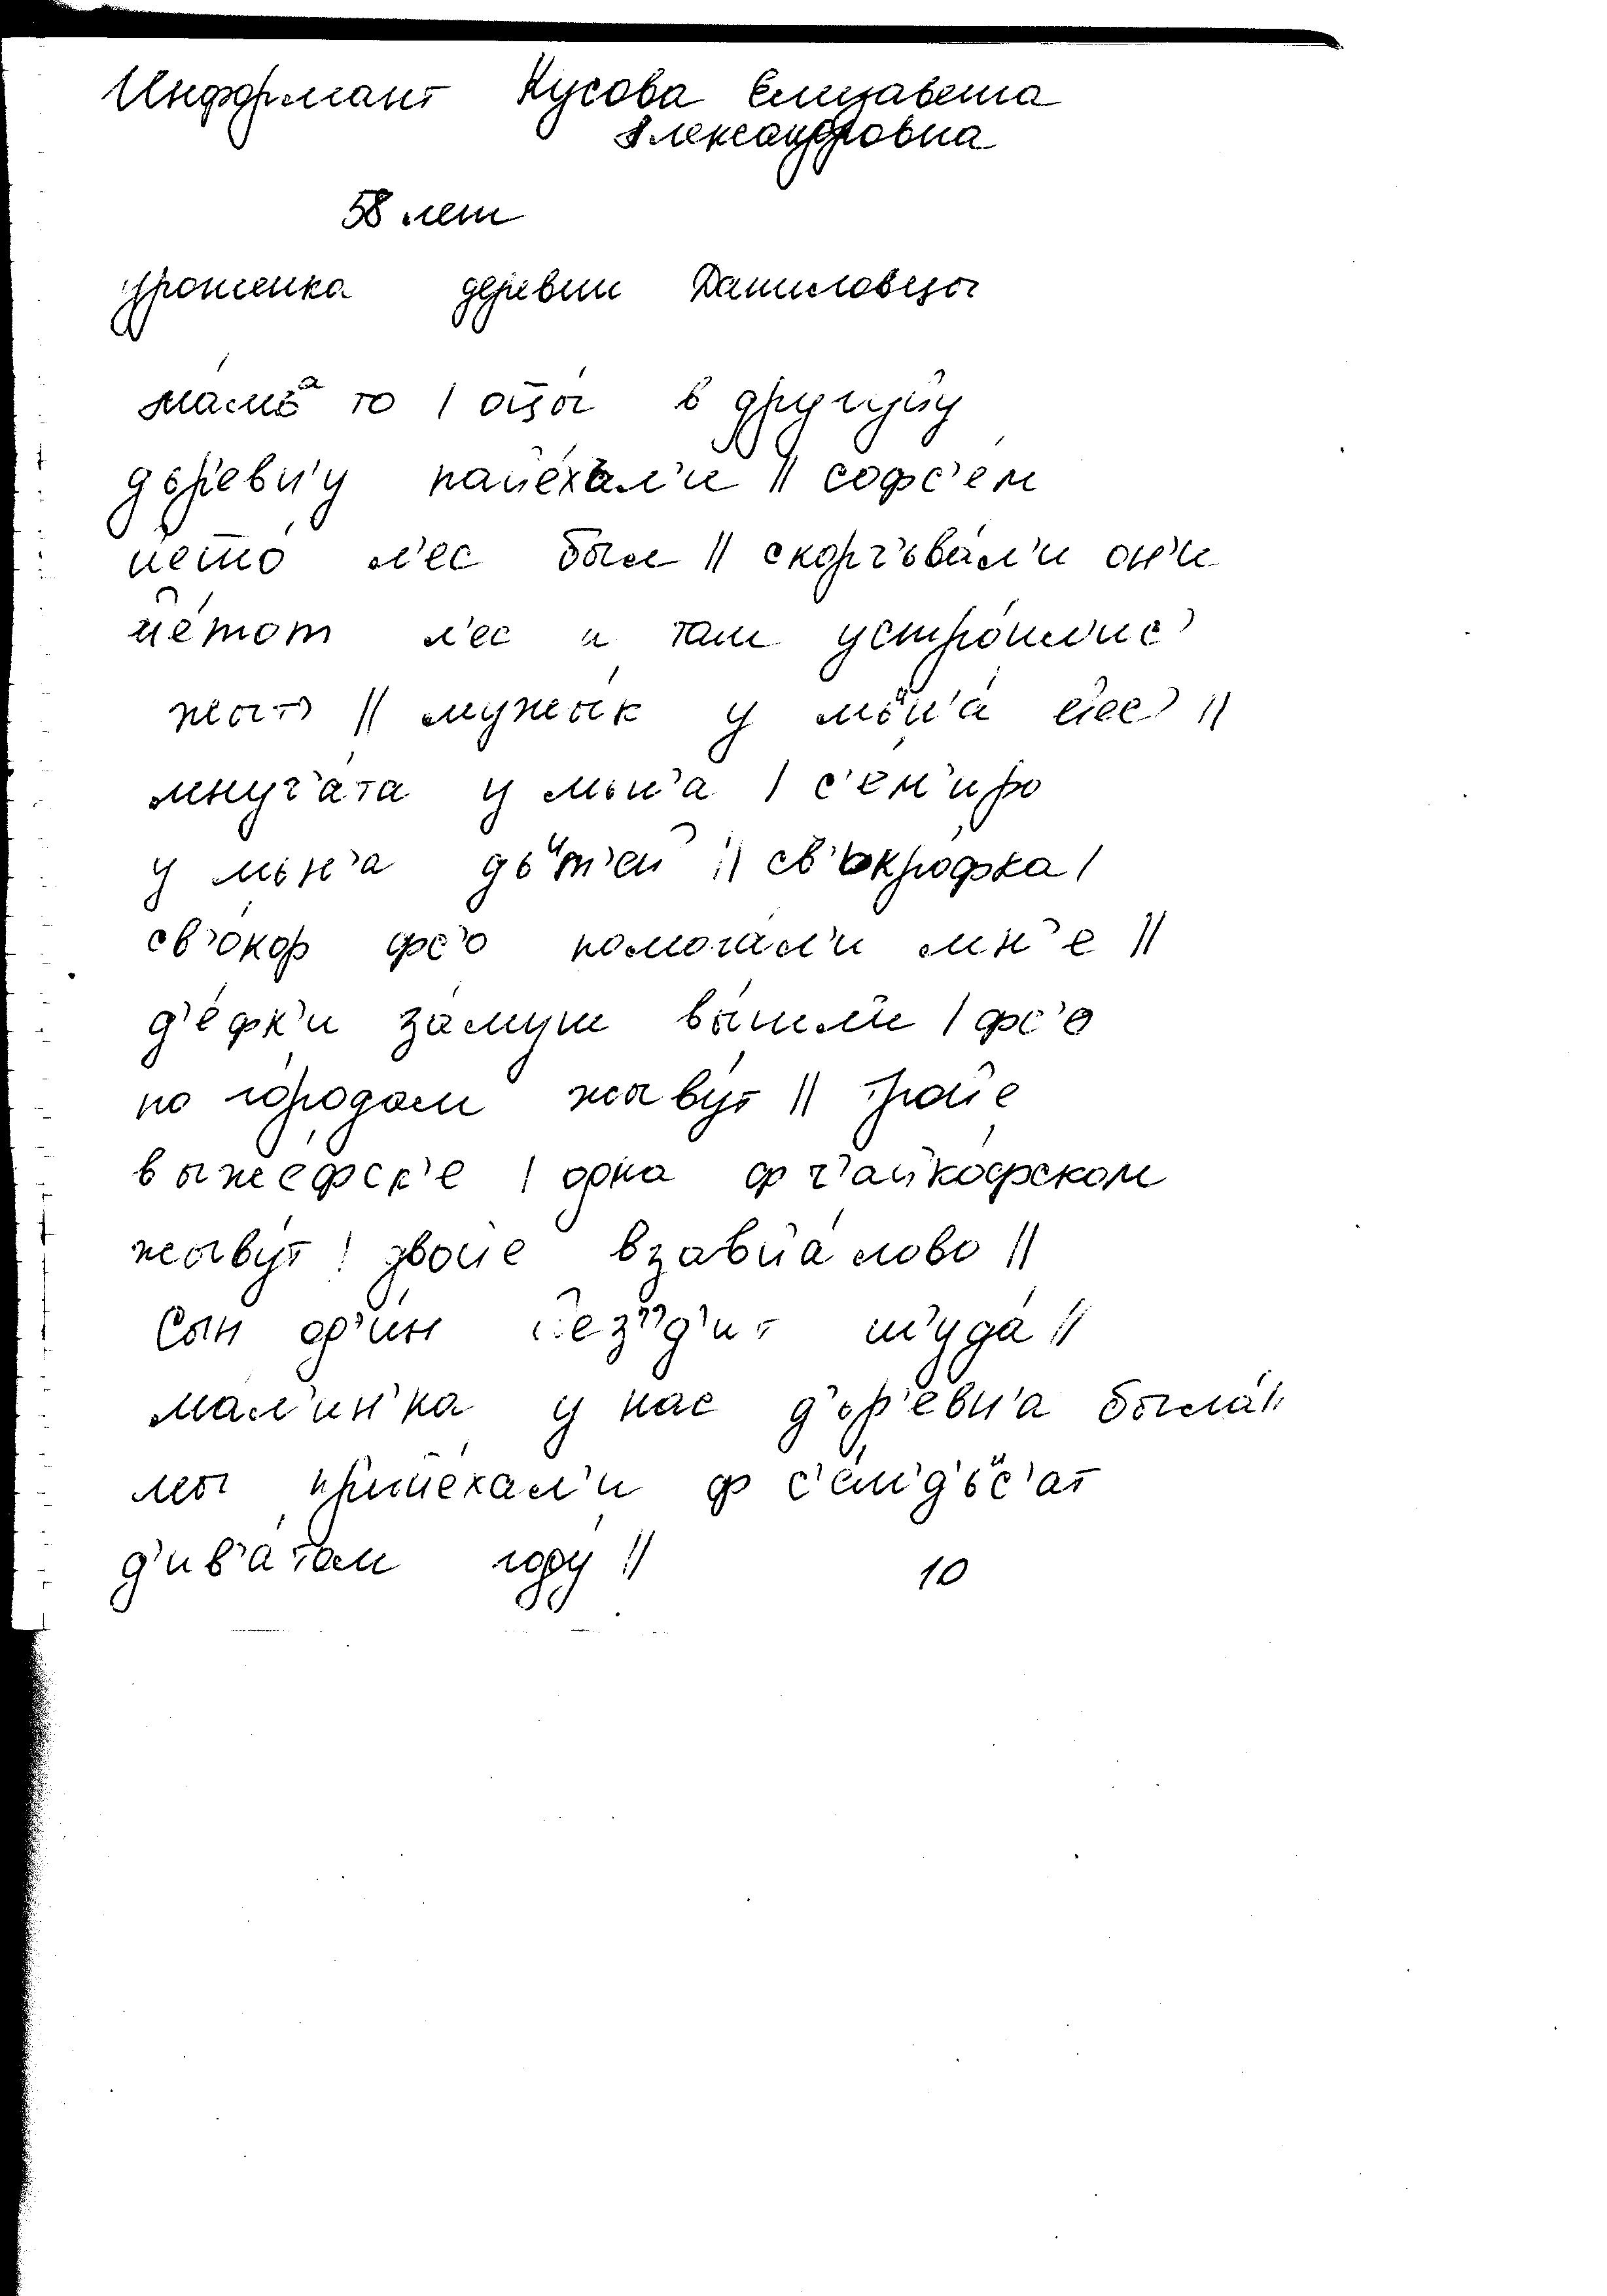 Информант Кусова Елизавета
Александровна
58 лет
уроженка деревни Даниловцы
ма́мъᵃ то | отцы́ в другуйу
дър'евн'у пайе́хал'и || софс'е́м
йето́ л'ес был || скорч'ъва́л'и он'и
йе́тот л'ес и там устро́илис'
жыт' || мужы́к у мъᵘн'а́ йес' ||
мнуч'а́та у мън'а | с'е́м'иро
у мън'а дъᵘт'ей || св'ъкро́фка |
св'о́кор фс'о помога́л'и мн'е ||
д'е́фк'и за́муш вы́шли | фс'о
по города́м жыву́т || тройе
выже́фск'е | одна ф ч'айко́фском
жыву́т | двойе взавйа́лово ||
Сын од'и́н йез'д'ит туда́ ||
мал'ин'ка у нас д'ър'е́вн'а была́ ||
мы пр'ийе́хал'и ф с'е́м'д'ъᵘс'ат
д'ив'а́том году́ ||
10